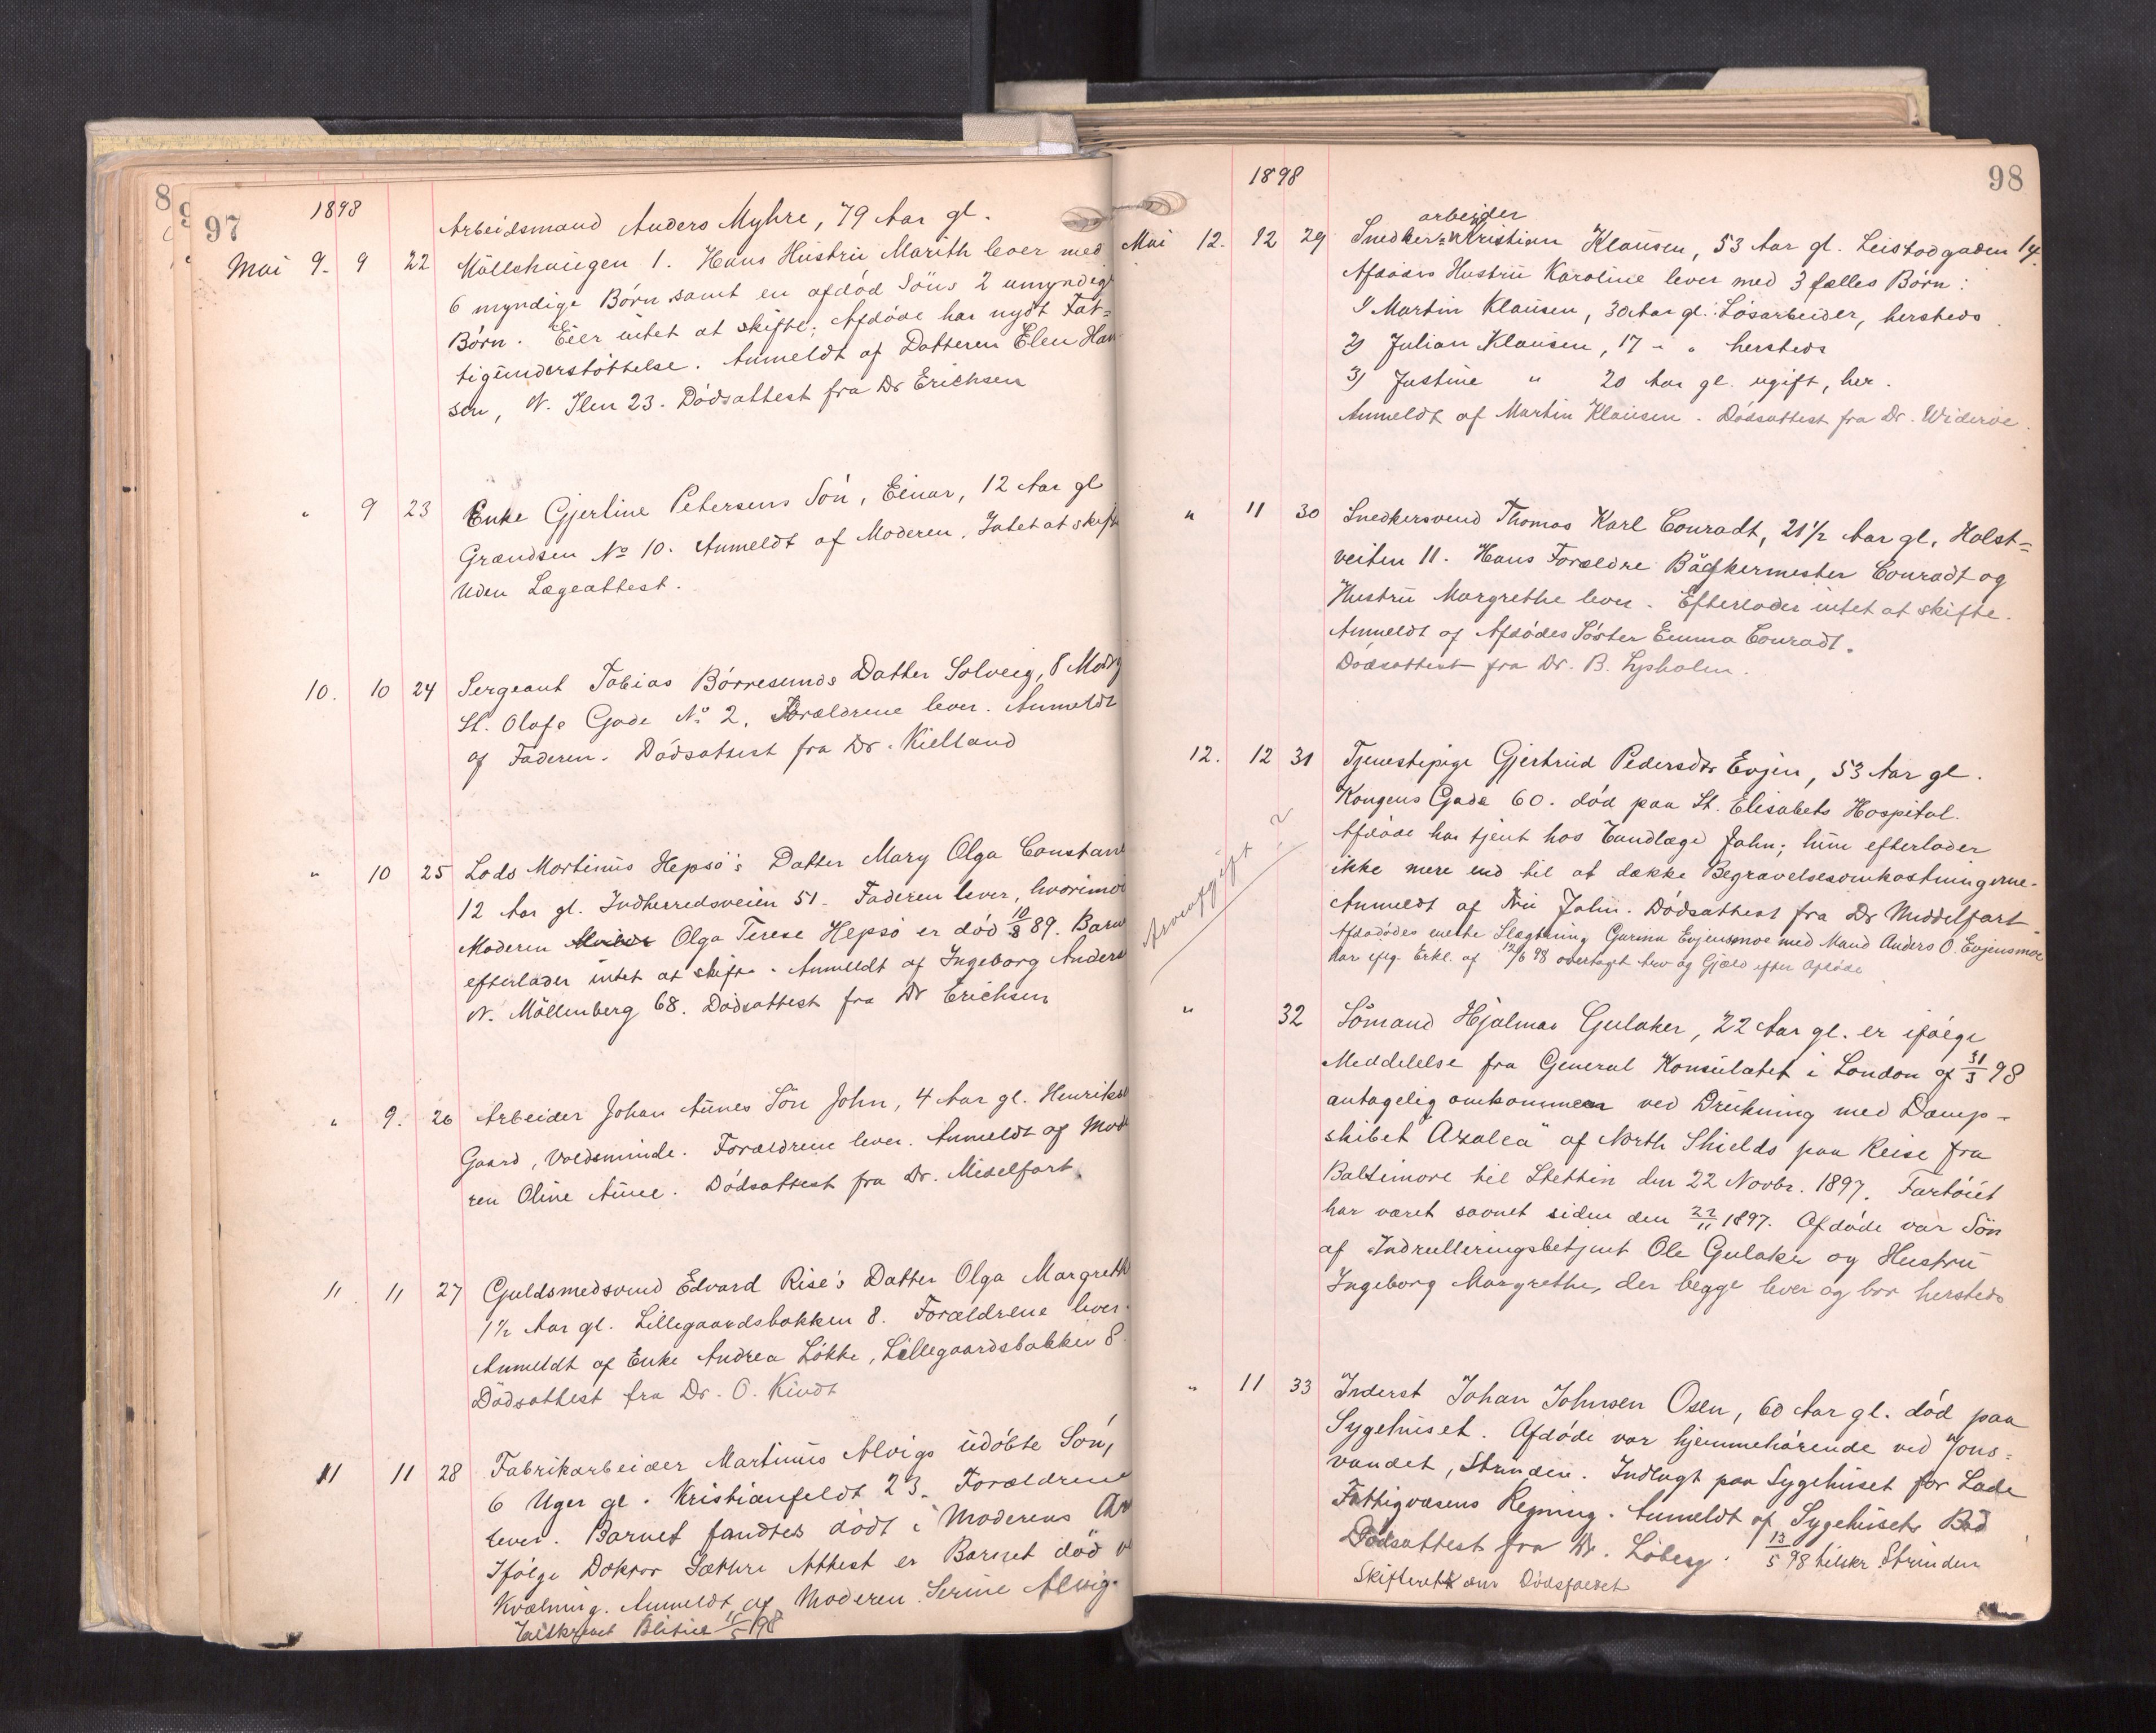 97
1898
Arbeidsmand Anders Myhre, 79 Aar gl.
Mai 9. 9 22 Möllehaugen 1. Hans Hustru Marith lever med
6 myndige Börn samt en afdöd Söns 2 umyndige
Börn. Eier intet at skifte. Afdöde har nydt Fat-
tigunderstöttelse. Anmeldt af Datteren Elen Han-
sen, N. Ilen 23. Dödsattest fra Dr Erichsen
" 9 23 Enke Gjertine Petersens Sön, Einar, 12 Aar gl
Grændsen No 10. Anmeldt af Moderen. Intet at skifte
Uden Lægeattest.
10. 10 24 Sergeant Tobias Börresends Datter Solveig, 8 Mdr g
St. Olafs Gade No 2. Forældrene lever. Anmeldt
af Faderen. Dödsattest fra Dr. Kielland
" 10 25 Lods Martinus Hepsö's Datter Mary Olga Constan
12 Aar gl. Indherredsveien 51. Faderen lever, hvorimo
Moderen Olga Terese Hepsö er död 10/8 89. Barn
efterlader intet at skifte. Anmeldt af Ingeborg Anders
N. Möllenberg 68. Dödsattest fra Dr Erichsen
" 9. 26 Arbeider Johan Aunes Sön John, 4 Aar gl. Henriks
Gaard, Voldsminde. Forældrene lever. Anmeldt af Mod
ren Oline Aune. Dödsattest fra Dr. Midelfart
11. 11 27 Guldsmedsvend Edvard Rise's Datter Olga Margreth
1½ Aar gl. Lillegaardsbakken 8. Forældrene lever.
Anmeldt af Enke Andrea Lökke, Lillegaardsbakken 8.
Dödsattest fra Dr. O. Kindt
11 11 28 Fabrikarbeider Martinus Alvigs udöbte Sön,
6 Uger gl. Kristianfeldt 23. Forældrene
lever. Barnet fandtes dödt i Moderens Ar
Ifölge Doktor Sæthre Attest er Barnet död v
Kvælning. Anmeldt af Moderen Serine Alvig.
98
1898
arbeider
Mai 12. 12 29 Snedker Kristian Klausen, 53 Aar gl. Leistadgaden 14.
Afdödes Hustru Karoline lever med 3 fælles Börn:
1) Martin Klausen, 30 Aar gl. Lösarbeider, hersteds
2) Julian Klausen, 17 " " hersteds
3) Justine " 20 Aar gl. ugift, her.
Anmeldt af Martin Klausen. Dödsattest fra Dr. Wideröe.
" 11 30 Snedkersvend Thomas Karl Conradt, 21½ Aar gl. Holst-
veiten 11. Hans Forældre Bagkermester Conradt og
Hustru Margrethe lever. Efterlader intet at skifte.
Anmeldt af Afdödes Söster Emma Conradt.
Dödsattest fra Dr. B. Lysholm.
12. 12 31 Tjenestepige Gjertrud Pedersdr Evjen, 53 Aar gl.
Kongens Gade 60. död paa St. Elisabets Hospital.
Afdöde har tjent hos Tandlæge Jahn; hun efterlader
ikke mere end til at dække Begravelsesomkostningerne.
Anmeldt af Fru Jahn. Dödsattest fra Dr Middelfart
Arveafgift ?
Afdödes eneste Slægtning Gurina Evjensmoe med Mand Anders O. Evjensmoe
har ifg. Erkl. af 12/6 98 overtaget Arv og Gjæld efter Afdöde
" 32 Sömand Hjalmar Gulaker, 22 Aar gl. er ifölge
Meddelelse fra General Konsulatet i London af 31/3 98
antagelig omkommen ved Drukning med Damp-
skibet "Azalea" af North Shields paa Reise fra
Baltimore til Stettin den 22 Novbr. 1897. Fartöiet
har været savnet siden den 22/11 1897. Afdöde var Sön
af Indrulleringsbetjent Ole Gulaker og Hustru
Ingeborg Margrethe, der begge lever og bor hersteds
" 11 33 Inderst Johan Johnsen Osen, 60 Aar gl. död paa
Sygehuset. Afdöde var hjemmehörende ved Jons-
vandet, Strinden. Indlagt paa Sygehuset for Lade
Fattigvæsens Regning. Anmeldt af Sygehusets Bud
Dödsattest fra Dr. Löberg. 13/5 98 tilskr. Strinden
Skifteret om Dödsfaldet